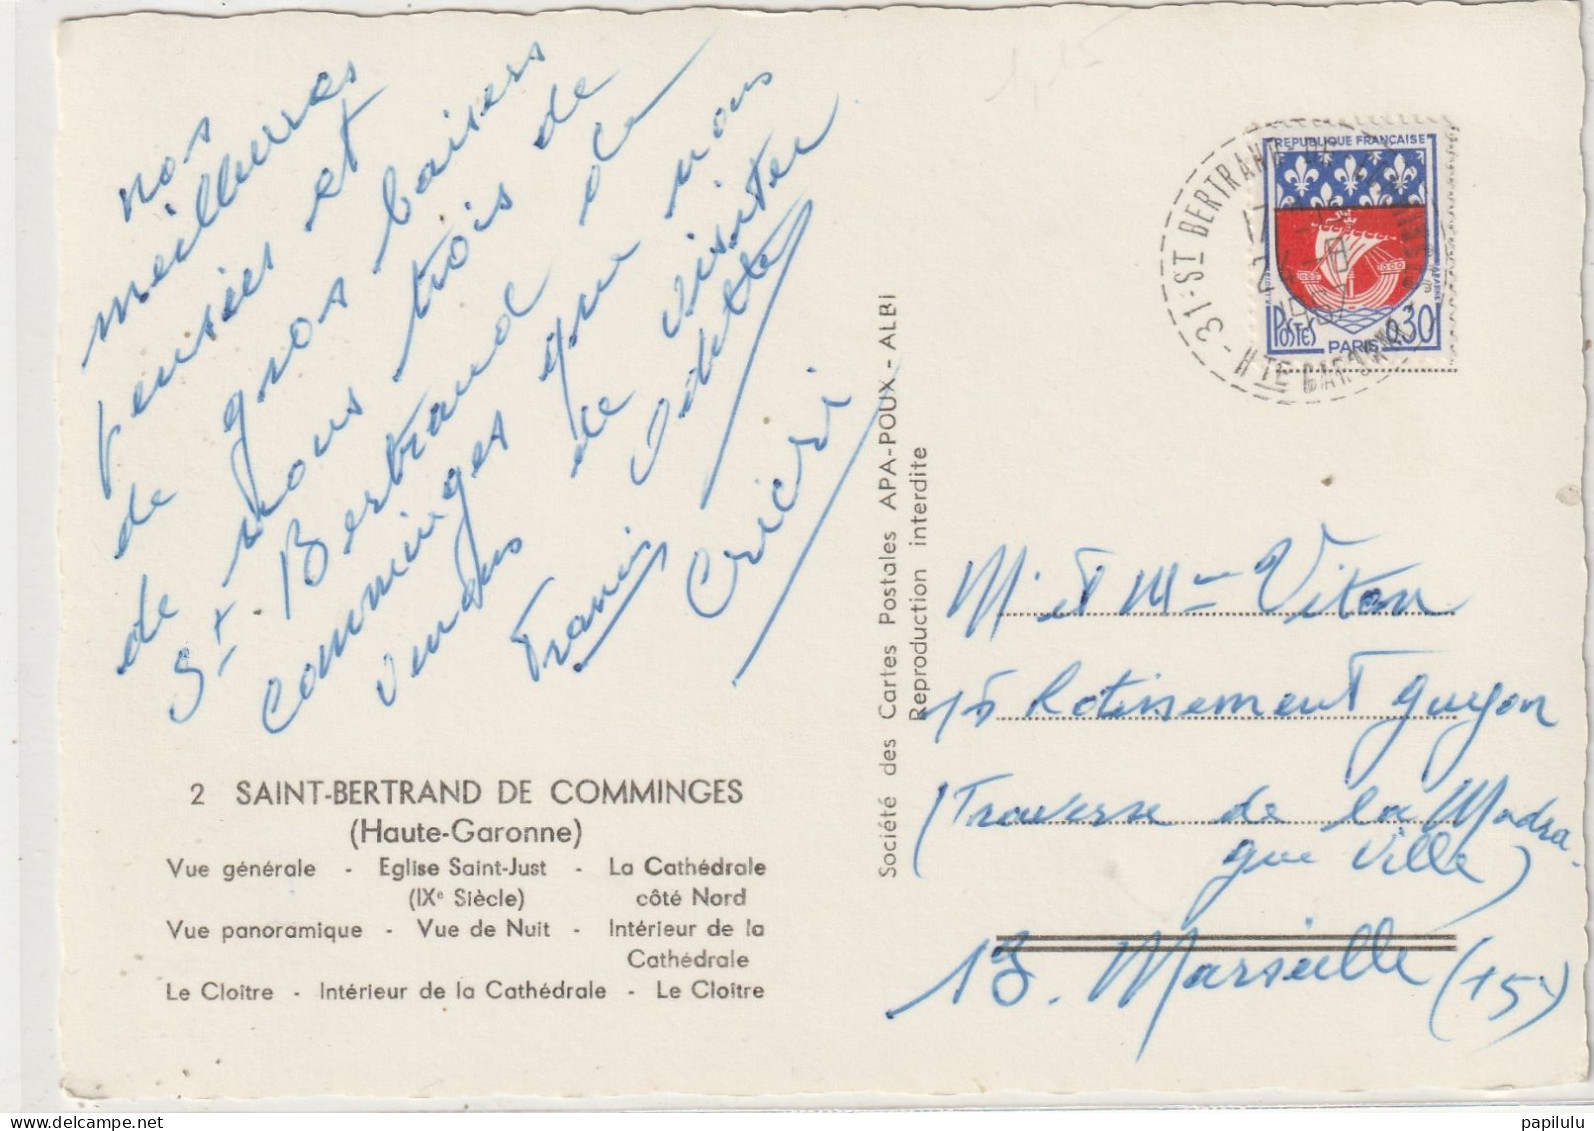 nos
meilleures
pensées et
de gros baisers
de nous trois de
St. Bertrand de
Comminges que nous
venons de visiter
Francis Odette
Cricri
2 SAINT-BERTRAND DE COMMINGES
(Haute-Garonne)
Vue générale - Eglise Saint-Just - La Cathédrale
(IXe Siècle) côté Nord
Vue panoramique - Vue de Nuit - Intérieur de la
Cathédrale
Le Cloître - Intérieur de la Cathédrale - Le Cloître
Société des Cartes Postales APA-POUX - ALBI
Reproduction interdite
1,15
REPUBLIQUE FRANÇAISE
POSTES 0,30
PARIS
31-ST BERTRAND-DE-COMMINGES
HTE GARONNE
M. et Mme Viton
15 Lotissement Guyon
(Traverse de la Madra-
gue Ville)
13. Marseille (15)
papilulu